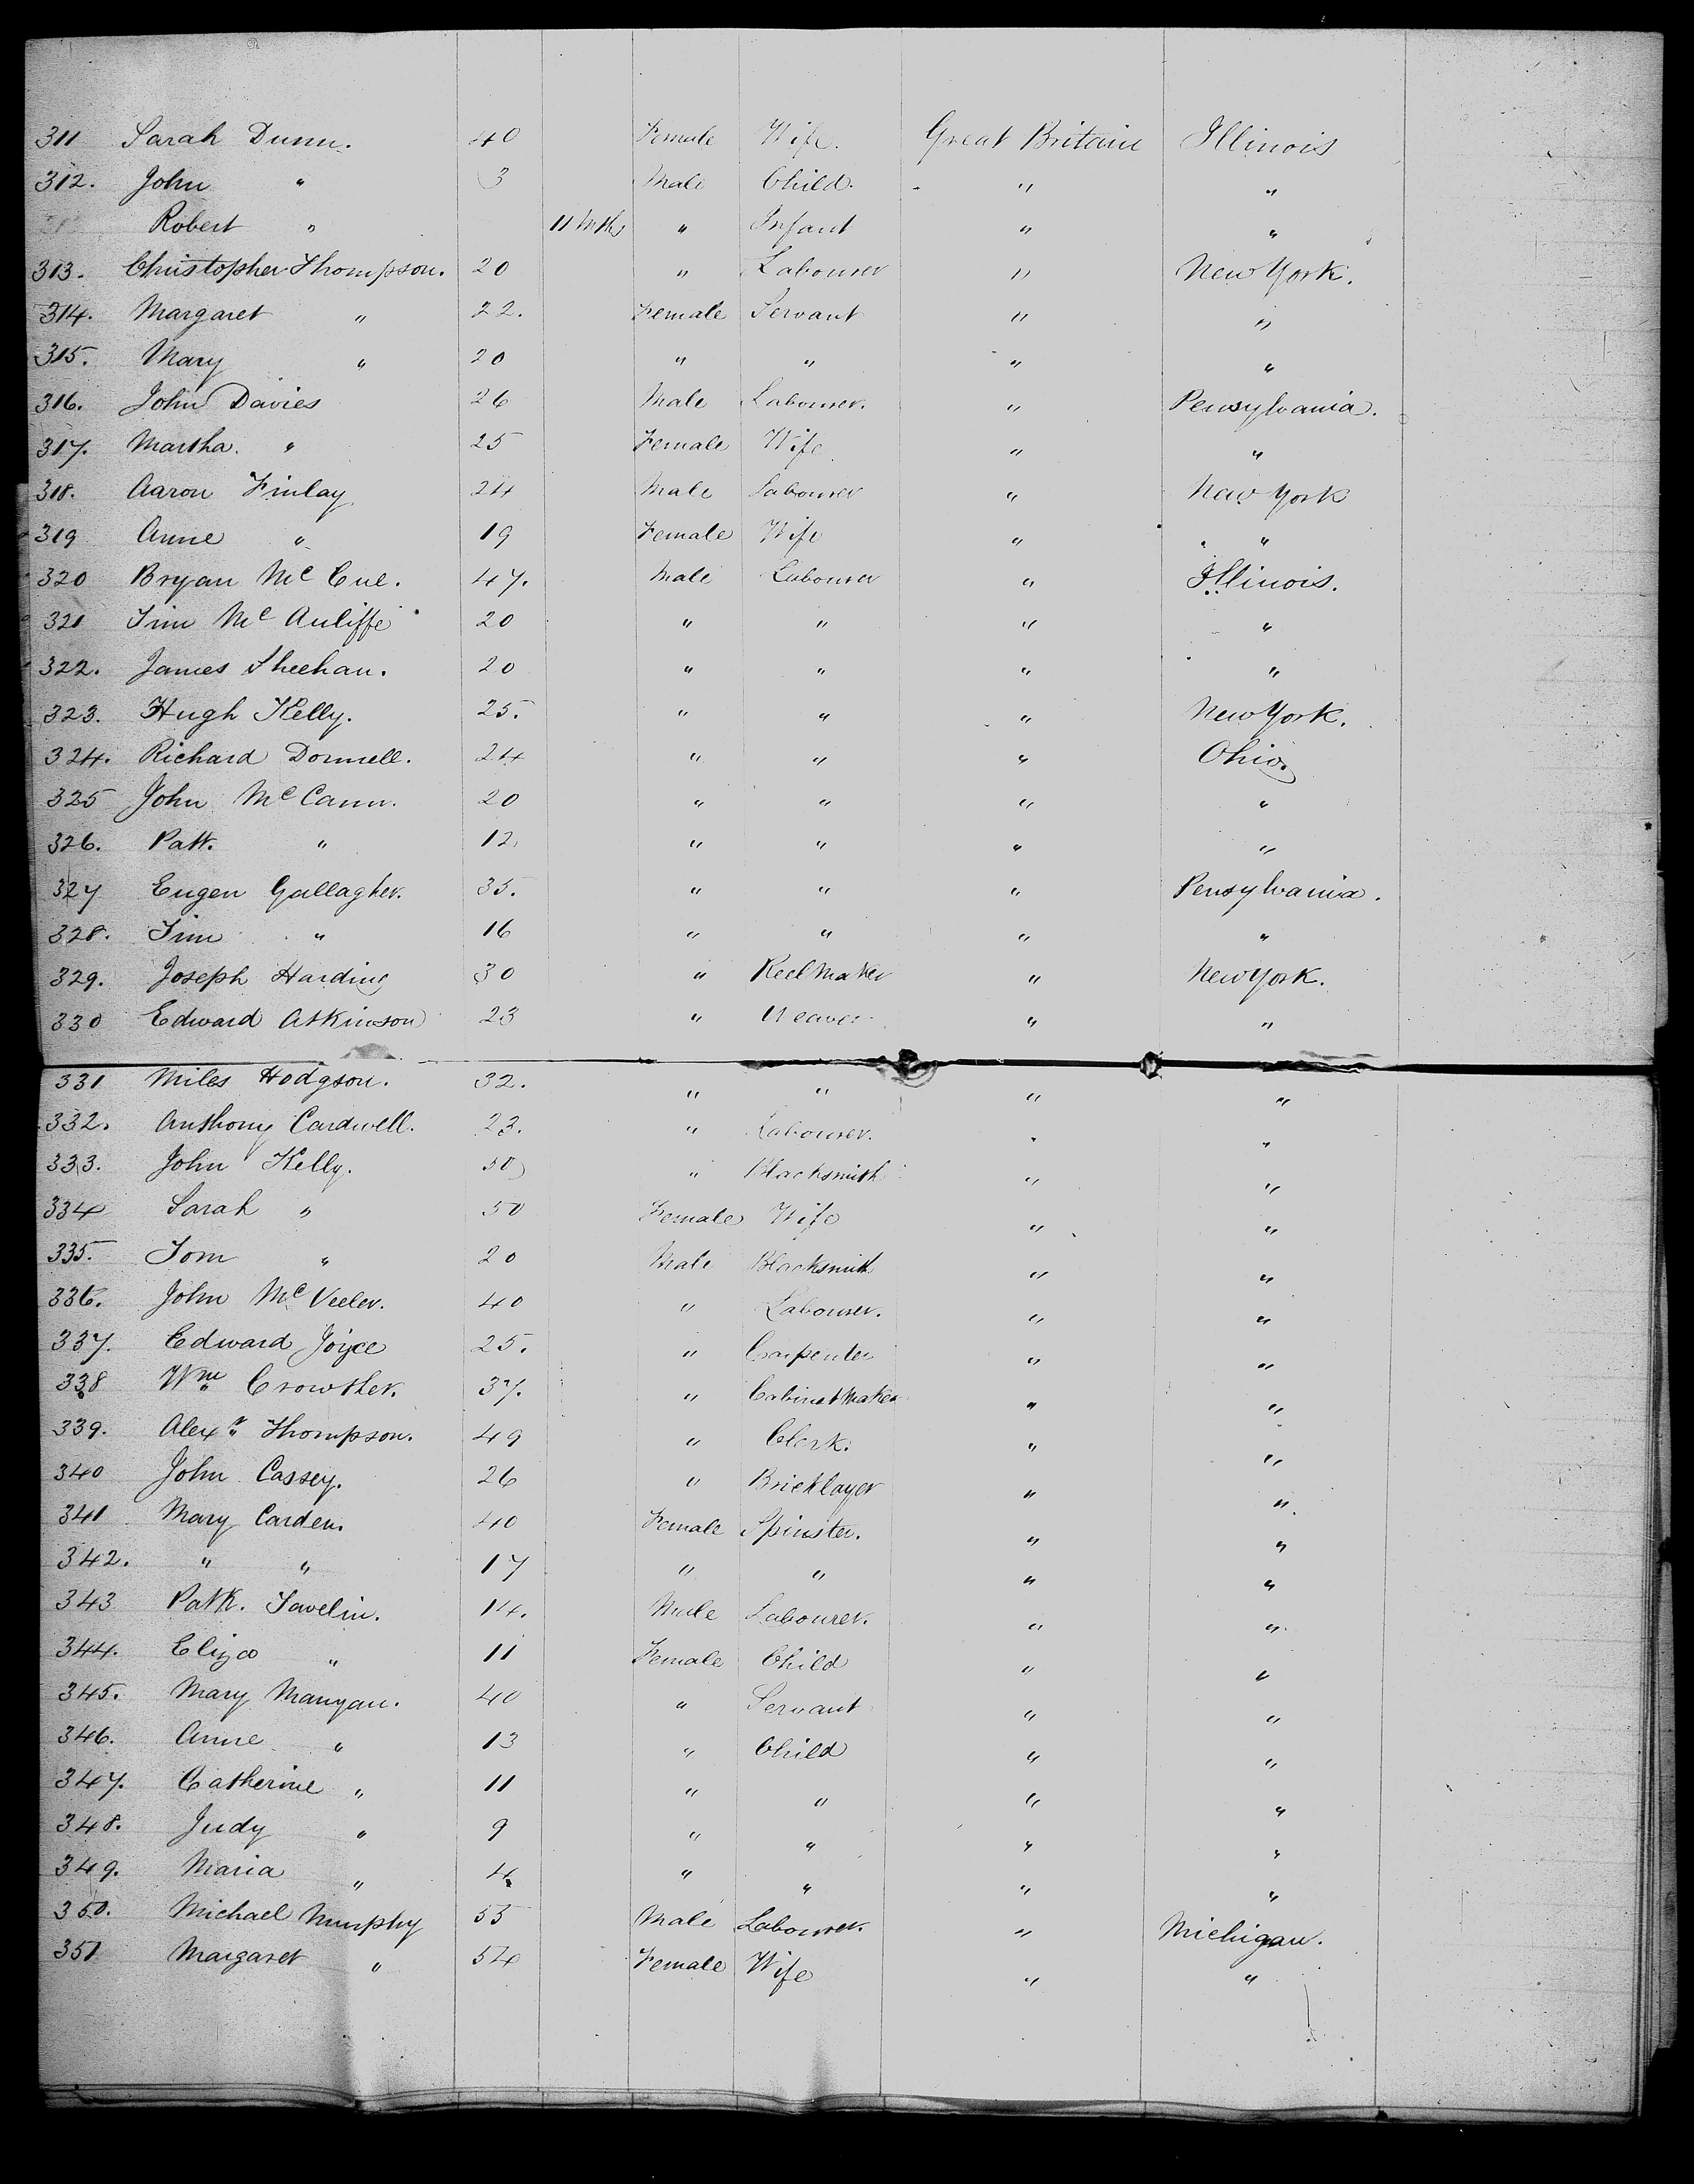 311 Sarah Dunn. 40 Female Wife. Great Britain Illinois
312. John " 3 Male Child. " "
Robert " 11 Mths " Infant " "
313. Christopher Thompson. 20 " Labourer " New York.
314. Margaret " 22. Female Servant " "
315. Mary " 20 " " " "
316. John Davies 26 Male Labourer. " Pensylvania.
317. Martha. " 25 Female Wife " "
318. Aaron Finlay 24 Male Labourer " New York
319 Anne " 19 Female Wife " "
320 Bryan Mc Cue. 47. Male Labourer " Illinois.
321 Tim Mc Auliffe 20 " " " "
322. James Sheehan. 20 " " " "
323. Hugh Kelly. 25. " " " New York.
324. Richard Donnell. 24 " " " Ohio.
325 John Mc Cann. 20 " " " "
326. Patk. " 12. " " " "
327 Eugen Gallagher. 35. " " " Pensylvania.
328. Tim " 16 " " " "
329. Joseph Harding 30 " Reelmaker " New York.
330 Edward Atkinson 23 " Weaver " "
331 Miles Hodgson. 32. " " " "
332. Anthony Cardwell. 23. " Labourer. " "
333. John Kelly. 50 " Blacksmith " "
334 Sarah " 50 Female Wife " "
335. Tom " 20 Male Blacksmith " "
336. John Mc Veeler. 40 " Labourer. " "
337. Edward Joyce 25. " Carpenter " "
338 Wm Crowther. 37. " Cabinet Maker " "
339. Alexr Thompson. 49 " Clerk. " "
340 John Cassey. 26 " Bricklayer " "
341 Mary Carden. 40 Female Spinster. " "
342. " " 17 " " " "
343 Patk. Tavelin. 14. Male Labourer. " "
344. Eliza " 11 Female Child " "
345. Mary Mangan. 40 " Servant " "
346. Anne " 13 " Child " "
347. Catherine " 11 " " " "
348. Judy " 9 " " " "
349. Maria " 4 " " " "
350. Michael Murphy 55 Male Labourer. " Michigan.
351 Margaret " 54 Female Wife " "